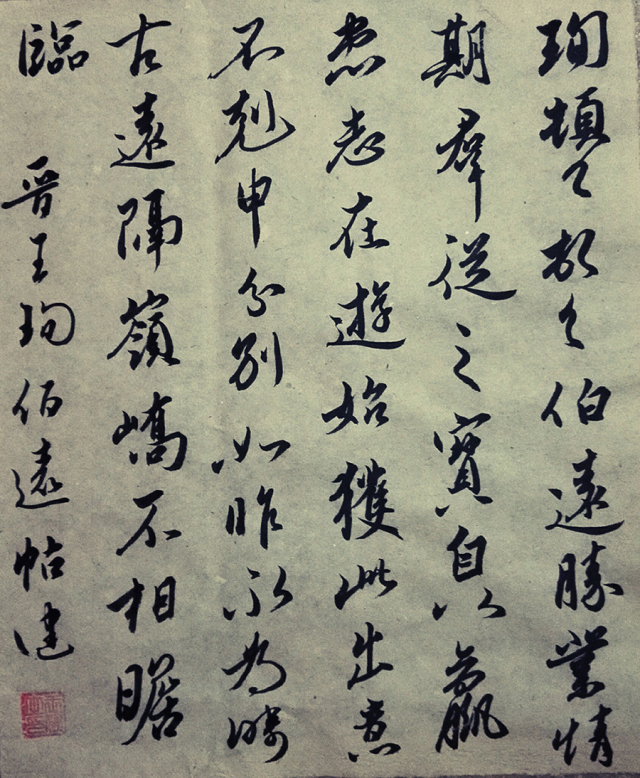 珣頓々首々伯遠勝業情
期群從之寶自以羸
患志在遊始獲此出意
不剋申分別如昨永為疇
古遠隔嶺嶠不相瞻
臨 晉王珣伯遠帖建